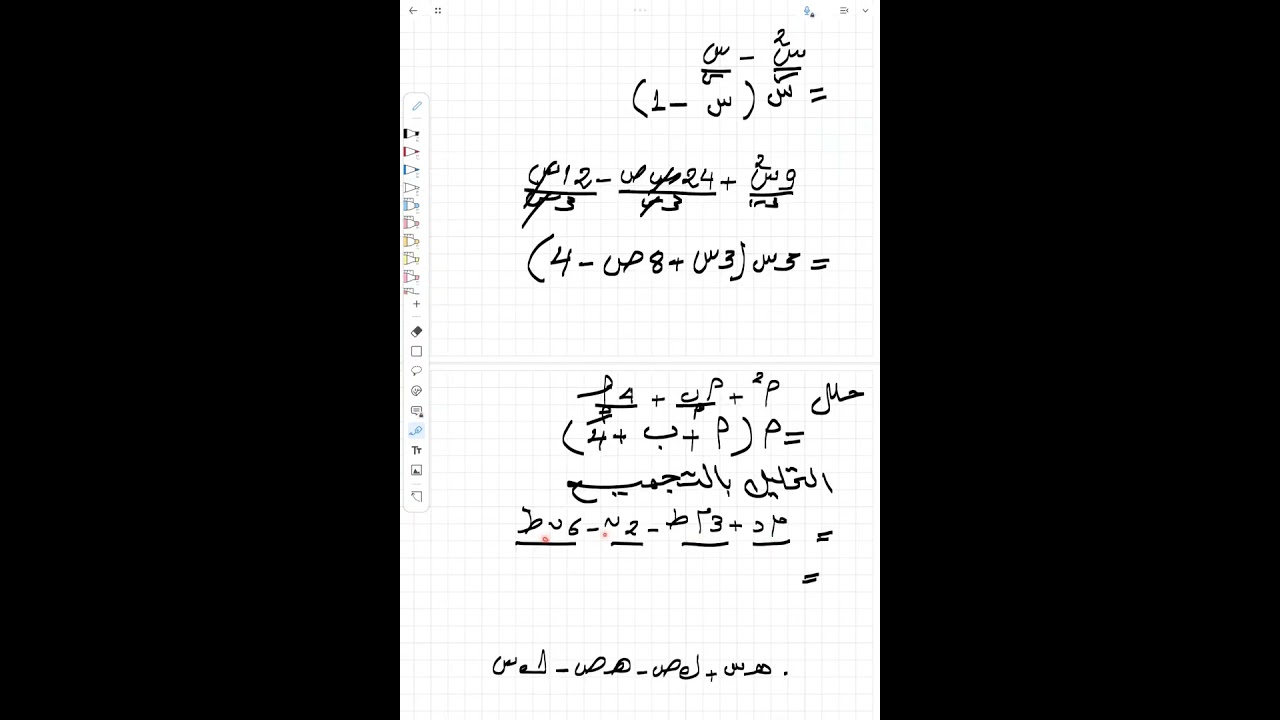 س² - س
= س ( س - 1 )
9س² + 24س ص - 12س
س3 س3 س3
= 3س ( 3س + 8ص - 4 )
حلل م² + م ب + 4م
= م ( م + ب + 4 )
التحليل بالتجميع
= م د + 3م ط - 2ن - 6ن ط
=
هـ س + ل ص - هـ ص - ل س
Tт